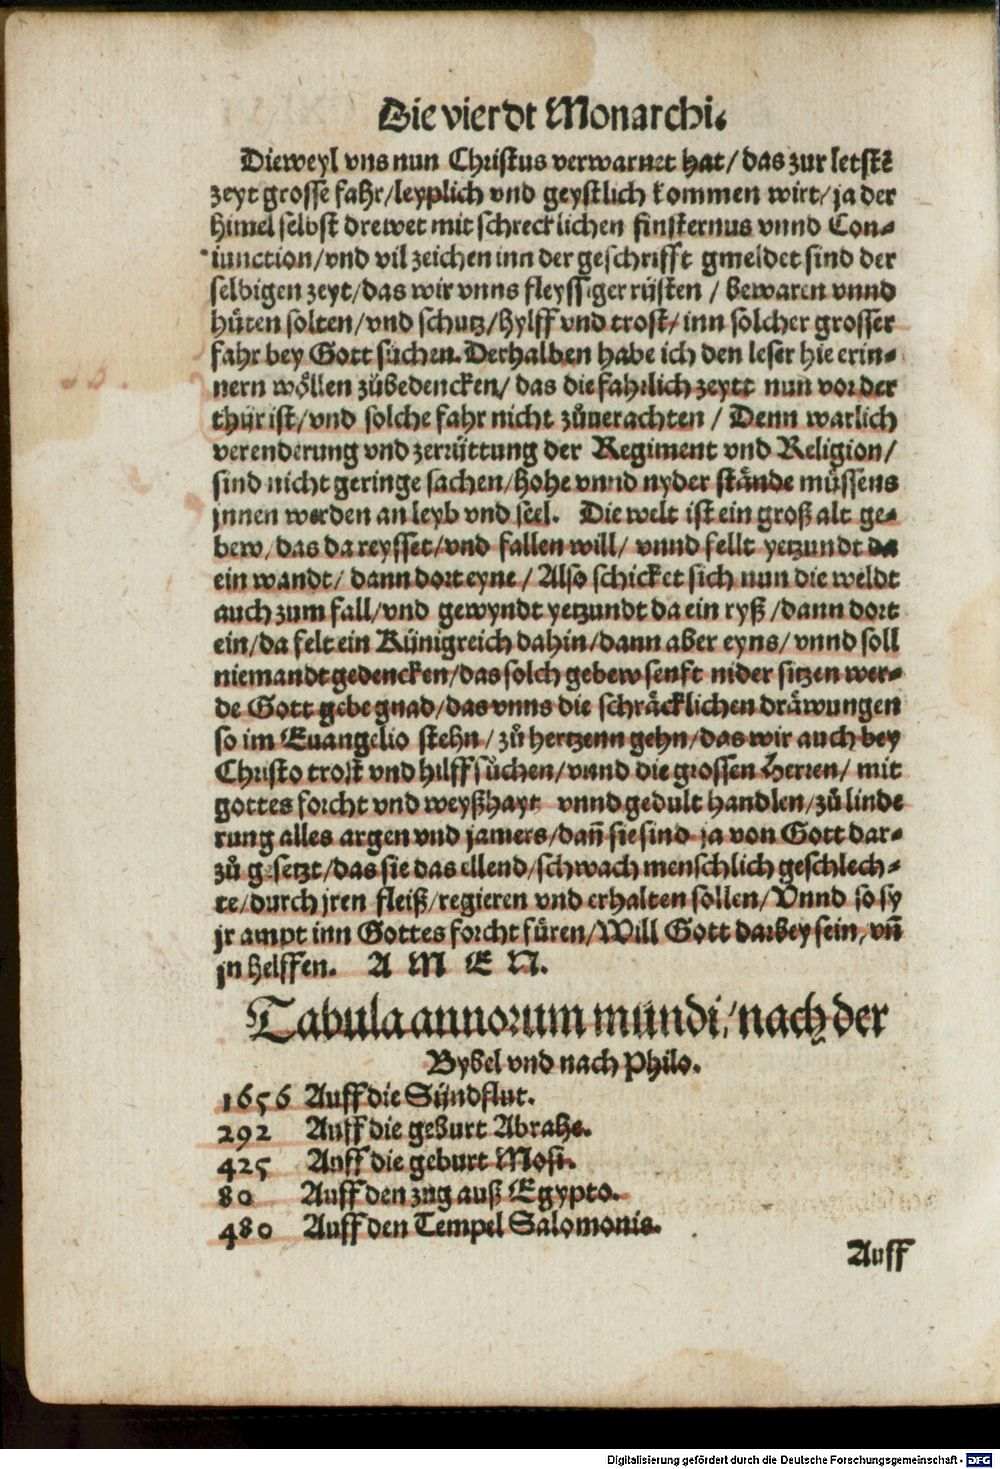 Die vierdt Monarchi.
Dieweyl vns nun Christus verwarnet hat/ das zur letstẽ
zeyt grosse fahr/leyplich vnd geystlich kommen wirt/ ja der
himel selbst drewet mit schrecklichen finsternus vnnd Con⸗
iunction/vnd vil zeichen inn der geschrifft gmeldet sind der
selbigen zeyt/das wir vnns fleyssiger rüsten / bewaren vnnd
hüten solten/vnd schutz/hylff vnd trost/ inn solcher grosser
fahr bey Gott süchen. Derhalben habe ich den leser hie erin⸗
nern wöllen zůbedencken/ das die fahrlich zeytt nun vor der
thür ist/vnd solche fahr nicht zůuerachten / Denn warlich
verenderung vnd zerrüttung der Regiment vnd Religion/
sind nicht geringe sachen/hohe vnnd nyder stånde müssens
jnnen werden an leyb vnd seel. Die welt ist ein groß alt ge⸗
bew/das da reysset/vnd fallen will/ vnnd fellt yetzundt da
ein wandt/ dann dort eyne / Also schicket sich nun die weldt
auch zum fall/vnd gewyndt yetzundt da ein ryß /dann dort
ein/da felt ein Künigreich dahin/dann aber eyns/ vnnd soll
niemandt gedencken/das solch gebew senft nider sitzen wer⸗
de Gott gebe gnad/das vnns die schräcklichen dräwungen
so im Euangelio stehn/ zů hertzenn gehn/das wir auch bey
Christo trost vnd hilff sůchen/vnnd die grossen Herren/ mit
gottes forcht vnd weyßhayt vnnd gedult handlen/zů linde
rung alles argen vnd jamers/dañ sie sind ja von Gott dar⸗
zů gesetzt/das sie das ellend/schwach menschlich geschlech⸗
te/durch jren fleiß/regieren vnd erhalten sollen/Vnnd so sy
jr ampt inn Gottes forcht füren/Will Gott darbey sein, vñ
jn helffen. A M E N.
Tabula annorum mundi/nach der
Bybel vnd nach Philo.
1656 Auff die Sündflut.
292 Auff die geburt Abrahe.
425 Auff die geburt Mosi.
80 Auff den zug auß Egypto.
480 Auff den Tempel Salomonis.
Auff
Digitalisierung gefördert durch die Deutsche Forschungsgemeinschaft - DFG